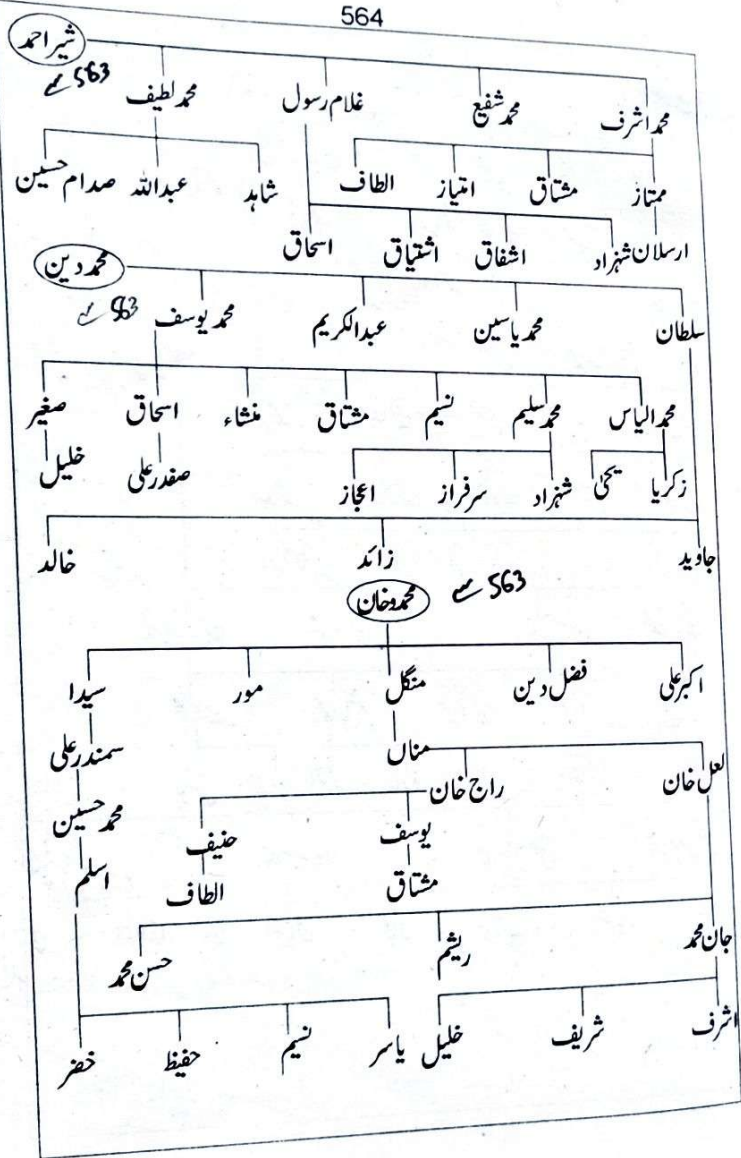 564
شیر احمد
563 سے
محمد اشرف محمد شفیع غلام رسول محمد لطیف
ممتاز مشتاق امتیاز الطاف شاہد عبداللہ صدام حسین
ارسلان شہزاد اشفاق اشتیاق اسحاق
محمد دین
563 سے
سلطان محمد یاسین عبدالکریم محمد یوسف
محمد الیاس محمد سلیم نسیم مشتاق منشاء اسحاق صغیر
زکریا یحیٰ شہزاد سرفراز اعجاز صفدر علی خلیل
جاوید زائد خالد
محمدو خان 563 سے
اکبر علی فضل دین منگل مور سیدا
لعل خان راج خان مناں سمندر علی
یوسف حنیف محمد حسین
مشتاق الطاف اسلم
جان محمد ریشم حسن محمد
اشرف شریف خلیل یاسر نسیم حفیظ خضر